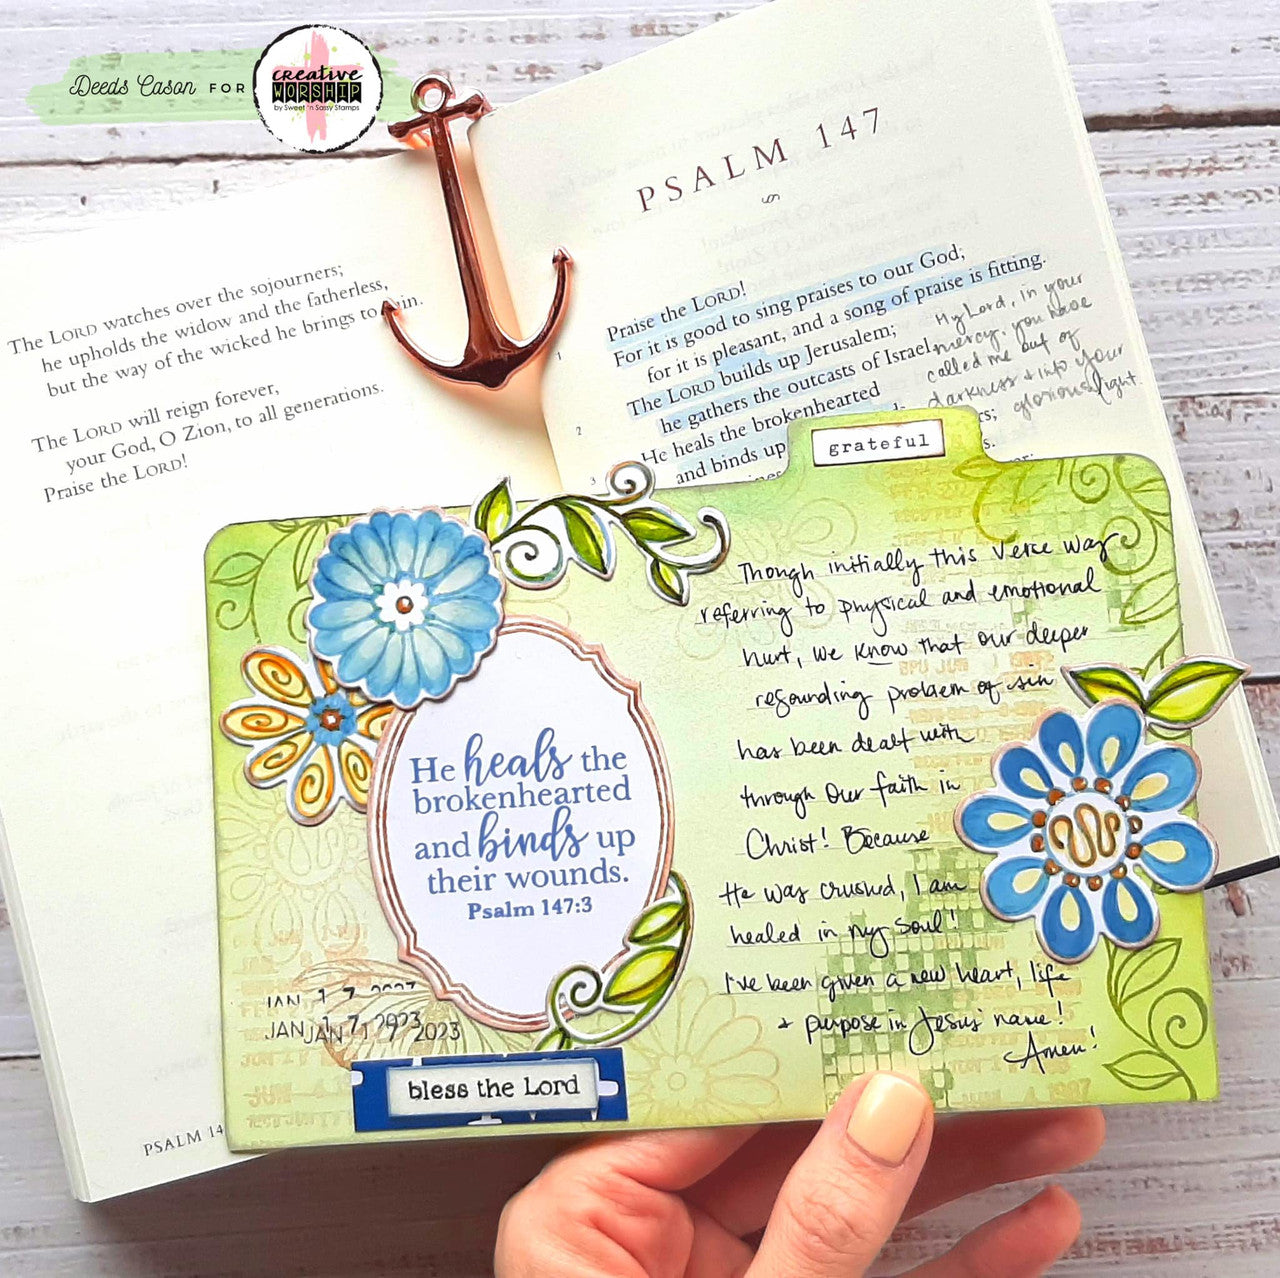 Deeds Cason FOR
creative
WORSHIP
by Sweet 'n Sassy Stamps
The LORD watches over the sojourners;
he upholds the widow and the fatherless,
but the way of the wicked he brings to
The LORD will reign forever,
your God, O Zion, to all generations.
Praise the LORD!
PSALM 14
PSALM 147
1
Praise the LORD!
For it is good to sing praises to our God;
for it is pleasant, and a song of praise is fitting.
2
The LORD builds up Jerusalem;
he gathers the outcasts of Israel.
3
He heals the brokenhearted
and binds up
My Lord, in your
mercy, you have
called me out of
darkness + into your
glorious light.
grateful
He heals the
brokenhearted
and binds up
their wounds.
Psalm 147:3
JAN 17 2023
JAN 17 2023
JAN 17 2023
bless the Lord
Though initially this verse was
referring to physical and emotional
hurt, we know that our deeper
resounding problem of sin
has been dealt with
through our faith in
Christ! Because
He was crushed, I am
healed in my soul!
I've been given a new heart, life
+ purpose in Jesus' name!
Amen!